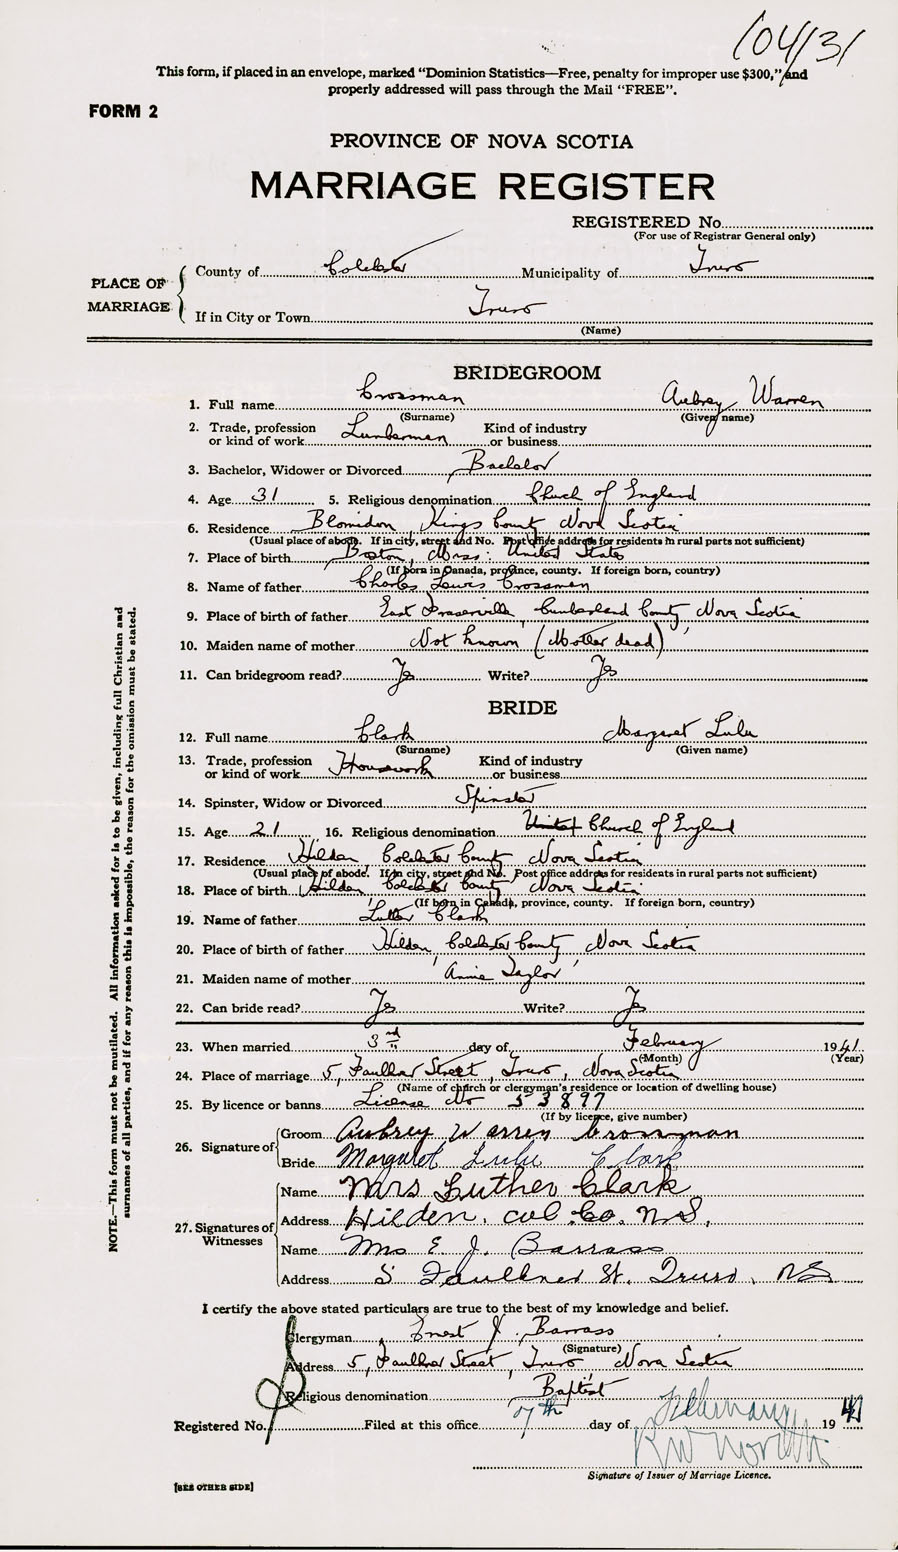 104131
This form, if placed in an envelope, marked “Dominion Statistics—Free, penalty for improper use $300,” and
properly addressed will pass through the Mail “FREE”.
FORM 2
PROVINCE OF NOVA SCOTIA
MARRIAGE REGISTER
REGISTERED No.
(For use of Registrar General only)
PLACE OF MARRIAGE
County of Colchester Municipality of Truro
If in City or Town Truro
(Name)
BRIDEGROOM
1. Full name Crossman Aubrey Warren
(Surname) (Given name)
2. Trade, profession or kind of work Lumberman Kind of industry or business
3. Bachelor, Widower or Divorced Bachelor
4. Age 31 5. Religious denomination Church of England
6. Residence Blomidon, Kings County Nova Scotia
(Usual place of abode. If in city, street and No. Post office address for residents in rural parts not sufficient)
7. Place of birth Boston, Mass. United States
(If born in Canada, province, county. If foreign born, country)
8. Name of father Charles Lewis Crossman
9. Place of birth of father East Fraserville, Cumberland County, Nova Scotia
10. Maiden name of mother Not known (Mother dead)
11. Can bridegroom read? Yes Write? Yes
BRIDE
12. Full name Clark Margaret Lulu
(Surname) (Given name)
13. Trade, profession or kind of work Housework Kind of industry or business
14. Spinster, Widow or Divorced Spinster
15. Age 21 16. Religious denomination United Church of England
17. Residence Hilden, Colchester County Nova Scotia
(Usual place of abode. If in city, street and No. Post office address for residents in rural parts not sufficient)
18. Place of birth Hilden, Colchester County, Nova Scotia
(If born in Canada, province, county. If foreign born, country)
19. Name of father Luther Clark
20. Place of birth of father Hilden, Colchester County, Nova Scotia
21. Maiden name of mother Annie Taylor
22. Can bride read? Yes Write? Yes
23. When married 3rd day of February 1941
(Month) (Year)
24. Place of marriage 5, Faulkner Street, Truro, Nova Scotia
(Name of church or clergyman's residence or location of dwelling house)
25. By licence or banns License No 53897
(If by licence, give number)
26. Signature of
Groom Aubrey Warren Crossman
Bride Margaret Lulu Clark
27. Signatures of Witnesses
Name Mrs Luther Clark
Address Hilden. Col. Co. N.S.
Name Mrs E. J. Barrass
Address 5 Faulkner St. Truro, NS
I certify the above stated particulars are true to the best of my knowledge and belief.
Clergyman Ernest J. Barrass
(Signature)
Address 5, Faulkner Street, Truro Nova Scotia
Religious denomination Baptist
Registered No. Filed at this office 7th day of February 1941
Signature of Issuer of Marriage Licence.
[SEE OTHER SIDE]
NOTE.—This form must not be mutilated. All information asked for is to be given, including full Christian and
surnames of all parties, and if for any reason this is impossible, the reason for the omission must be stated.